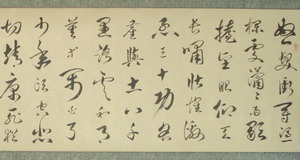 怒髮衝冠憑
欄處瀟瀟雨歇
抬望眼仰天
長嘯壯懷激
烈三十功名
塵與土八千
里路雲和月
莫等閒白了
少年頭空悲
切靖康恥猶